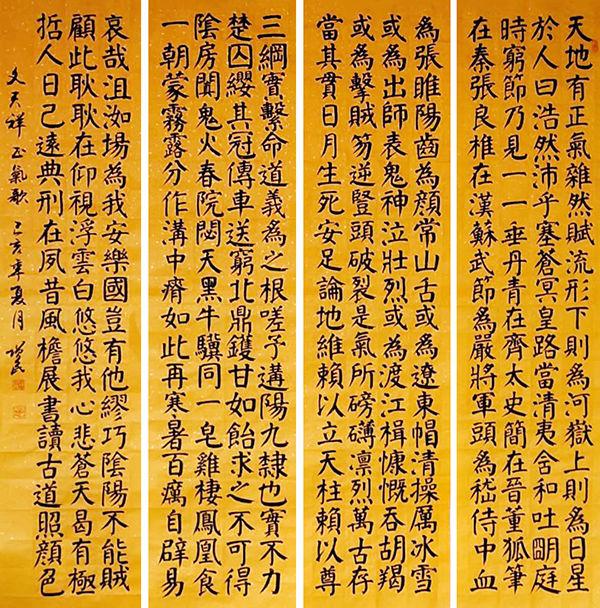 天地有正氣雜然賦流形下則為河嶽上則為日星
於人曰浩然沛乎塞蒼冥皇路當清夷含和吐朙庭
時窮節乃見一一垂丹青在齊太史簡在晉董狐筆
在秦張良椎在漢蘇武節為嚴將軍頭為嵇侍中血
為張睢陽齒為顏常山舌或為遼東帽清操厲冰雪
或為出師表鬼神泣壯烈或為渡江楫慷慨吞胡羯
或為擊賊笏逆豎頭破裂是氣所磅礴凜烈萬古存
當其貫日月生死安足論地維賴以立天柱賴以尊
三綱實繫命道義為之根嗟予遘陽九隸也實不力
楚囚纓其冠傳車送窮北鼎鑊甘如飴求之不可得
陰房闃鬼火春院閟天黑牛驥同一皂雞棲鳳凰食
一朝蒙霧露分作溝中瘠如此再寒暑百癘自辟易
哀哉沮洳場為我安樂國豈有他繆巧陰陽不能賊
顧此耿耿在仰視浮雲白悠悠我心悲蒼天曷有極
哲人日已遠典刑在夙昔風檐展書讀古道照顏色
文天祥正氣歌 己亥年夏月